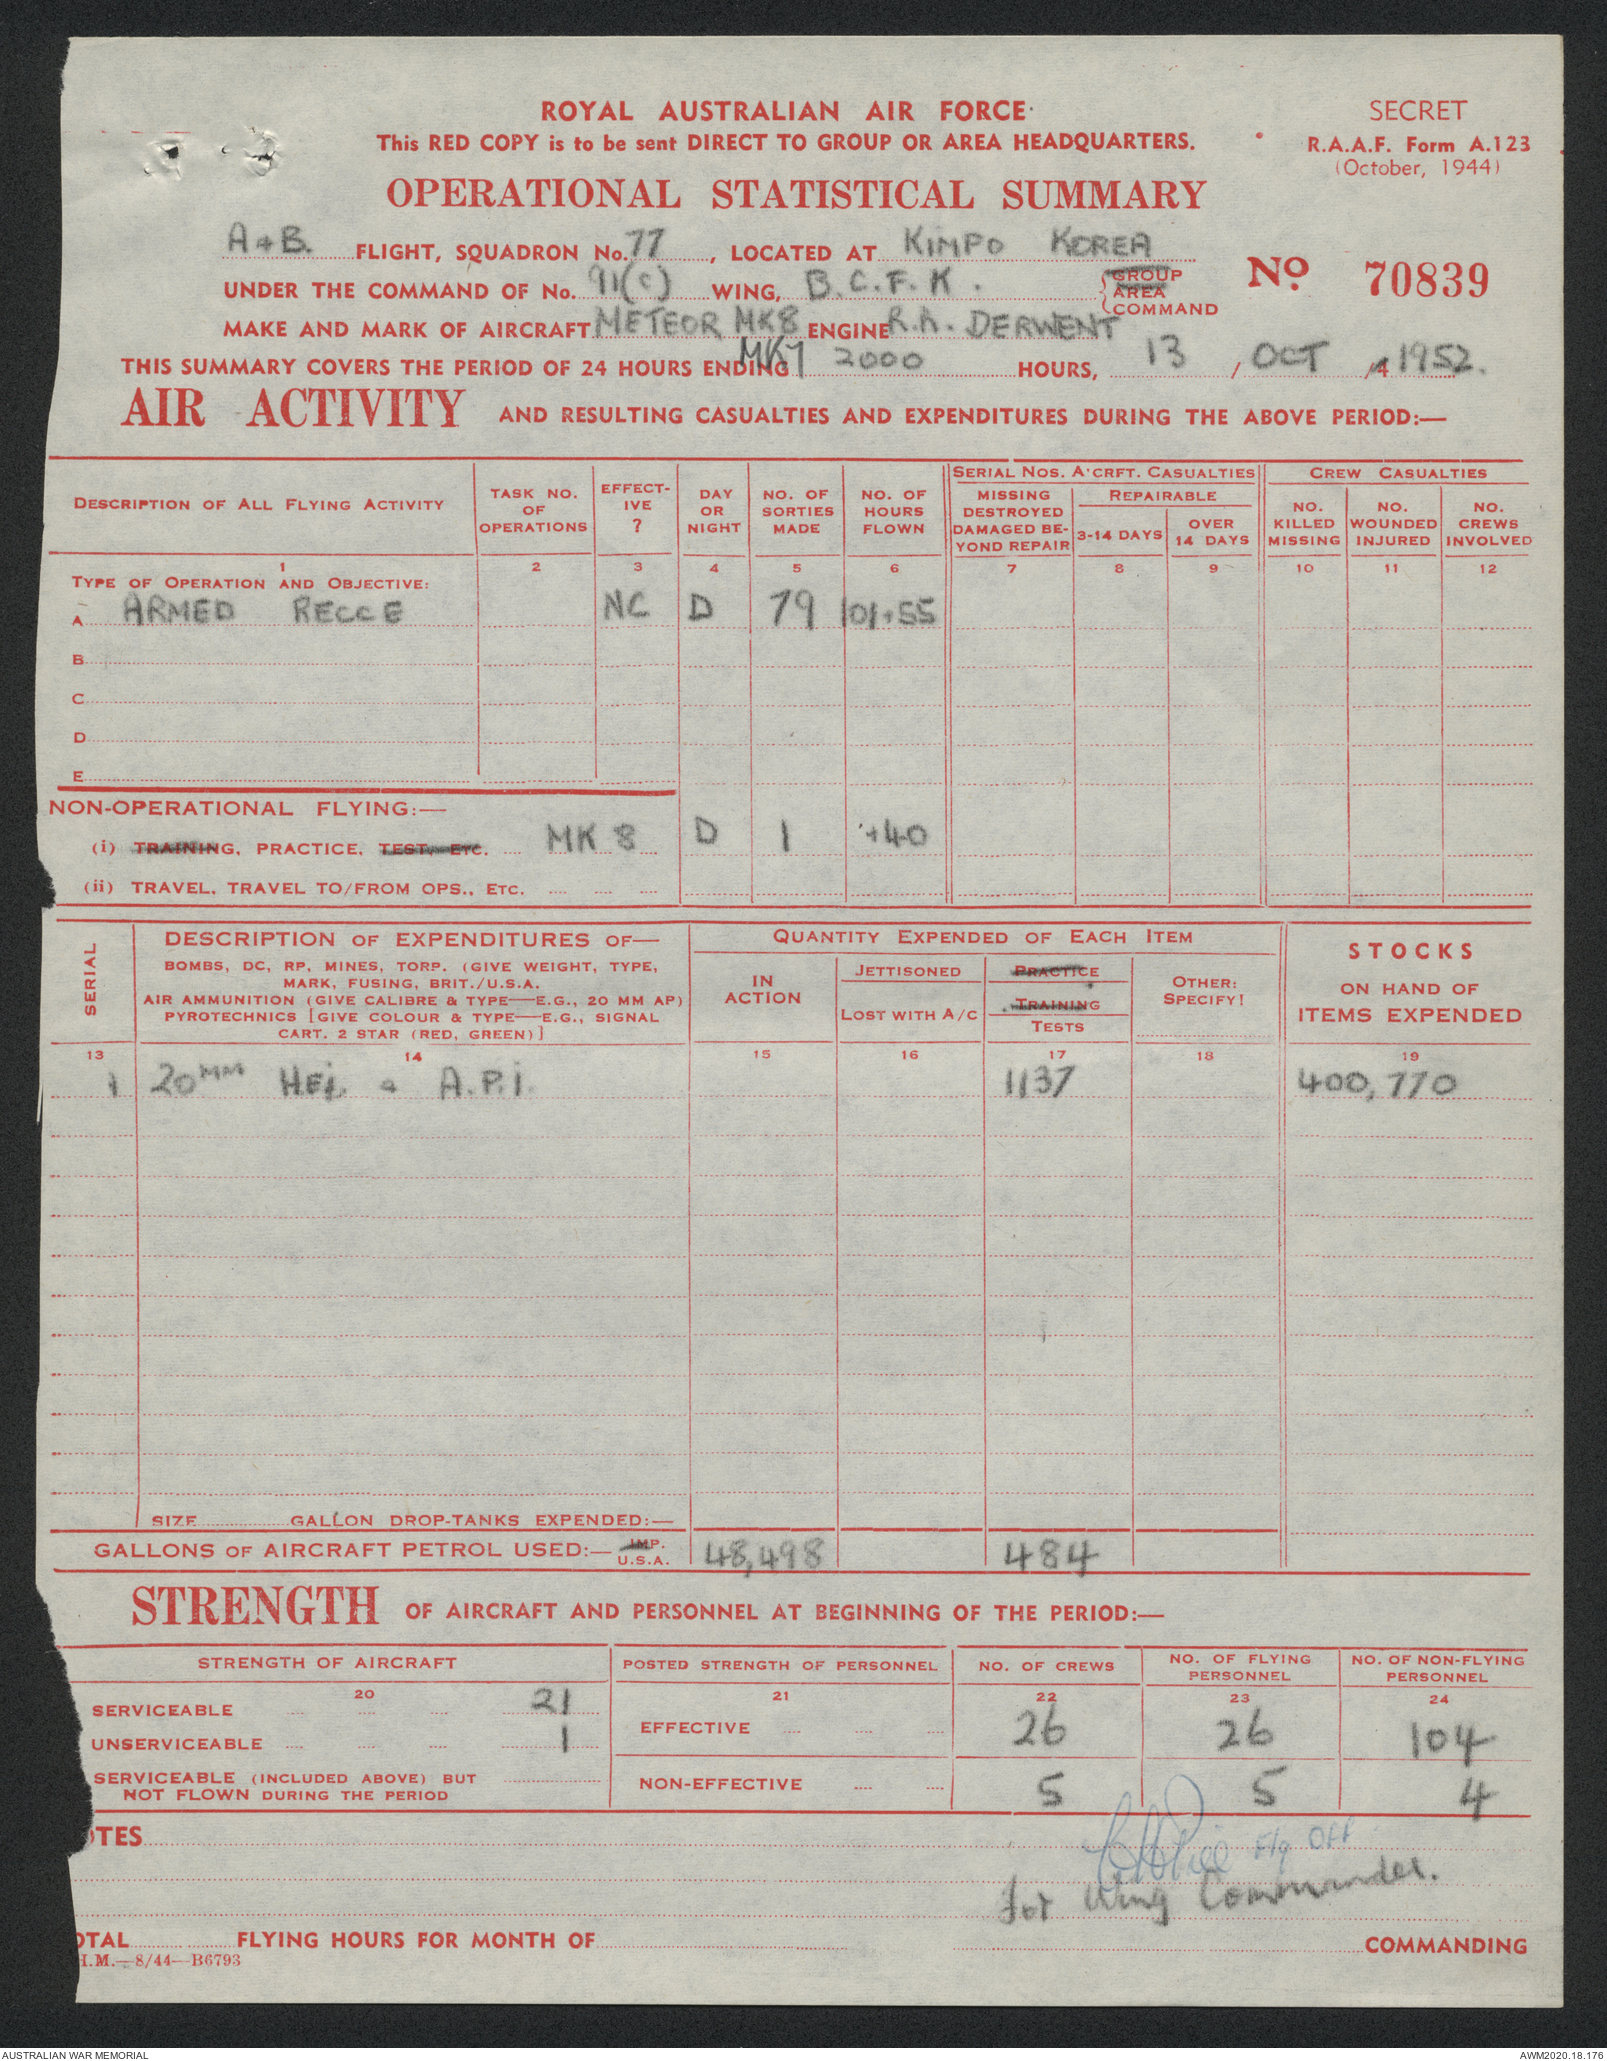 ROYAL AUSTRALIAN AIR FORCE
This RED COPY is to be sent DIRECT TO GROUP OR AREA HEADQUARTERS.
SECRET
R.A.A.F. Form A.123
(October, 1944)
OPERATIONAL STATISTICAL SUMMARY
A + B. FLIGHT, SQUADRON No. 77, LOCATED AT KIMPO KOREA
UNDER THE COMMAND OF No. 91(C) WING, B.C.F.K. GROUP AREA COMMAND
No. 70839
MAKE AND MARK OF AIRCRAFT METEOR MK8 ENGINE R.R. DERWENT
THIS SUMMARY COVERS THE PERIOD OF 24 HOURS ENDING 2000 HOURS, 13 / OCT / 1952.
AIR ACTIVITY AND RESULTING CASUALTIES AND EXPENDITURES DURING THE ABOVE PERIOD:—
DESCRIPTION OF ALL FLYING ACTIVITY
TASK NO. OF OPERATIONS
EFFECT-IVE ?
DAY OR NIGHT
NO. OF SORTIES MADE
NO. OF HOURS FLOWN
SERIAL NOS. A'CRFT. CASUALTIES
MISSING DESTROYED DAMAGED BE-YOND REPAIR
REPAIRABLE
3-14 DAYS
OVER 14 DAYS
CREW CASUALTIES
NO. KILLED MISSING
NO. WOUNDED INJURED
NO. CREWS INVOLVED
1 2 3 4 5 6 7 8 9 10 11 12
TYPE OF OPERATION AND OBJECTIVE:
A ARMED RECCE NC D 79 101.55
B
C
D
E
NON-OPERATIONAL FLYING:—
(i) TRAINING, PRACTICE, TEST, ETC. MK 8 D 1 .40
(ii) TRAVEL, TRAVEL TO/FROM OPS., ETC.
SERIAL
DESCRIPTION OF EXPENDITURES OF—
BOMBS, DC, RP, MINES, TORP. (GIVE WEIGHT, TYPE,
MARK, FUSING, BRIT./U.S.A.
AIR AMMUNITION (GIVE CALIBRE & TYPE—E.G., 20 MM AP)
PYROTECHNICS [GIVE COLOUR & TYPE—E.G., SIGNAL
CART. 2 STAR (RED, GREEN)]
QUANTITY EXPENDED OF EACH ITEM
IN ACTION
JETTISONED
LOST WITH A/C
PRACTICE
TRAINING
TESTS
OTHER: SPECIFY!
STOCKS
ON HAND OF
ITEMS EXPENDED
13 14 15 16 17 18 19
1 20MM H.E.I. & A.P.I. 1137 400,770
SIZE GALLON DROP-TANKS EXPENDED:—
GALLONS OF AIRCRAFT PETROL USED:— IMP. U.S.A. 48,498 484
STRENGTH OF AIRCRAFT AND PERSONNEL AT BEGINNING OF THE PERIOD:—
STRENGTH OF AIRCRAFT
POSTED STRENGTH OF PERSONNEL
NO. OF CREWS
NO. OF FLYING PERSONNEL
NO. OF NON-FLYING PERSONNEL
20 21 22 23 24
SERVICEABLE 21
UNSERVICEABLE 1
SERVICEABLE (INCLUDED ABOVE) BUT
NOT FLOWN DURING THE PERIOD
EFFECTIVE 26 26 104
NON-EFFECTIVE 5 5 4
OTES
F/g OFF
for Wing Commander.
OTAL FLYING HOURS FOR MONTH OF COMMANDING
H.M.—8/44—B6793
AUSTRALIAN WAR MEMORIAL
AWM2020.18.176